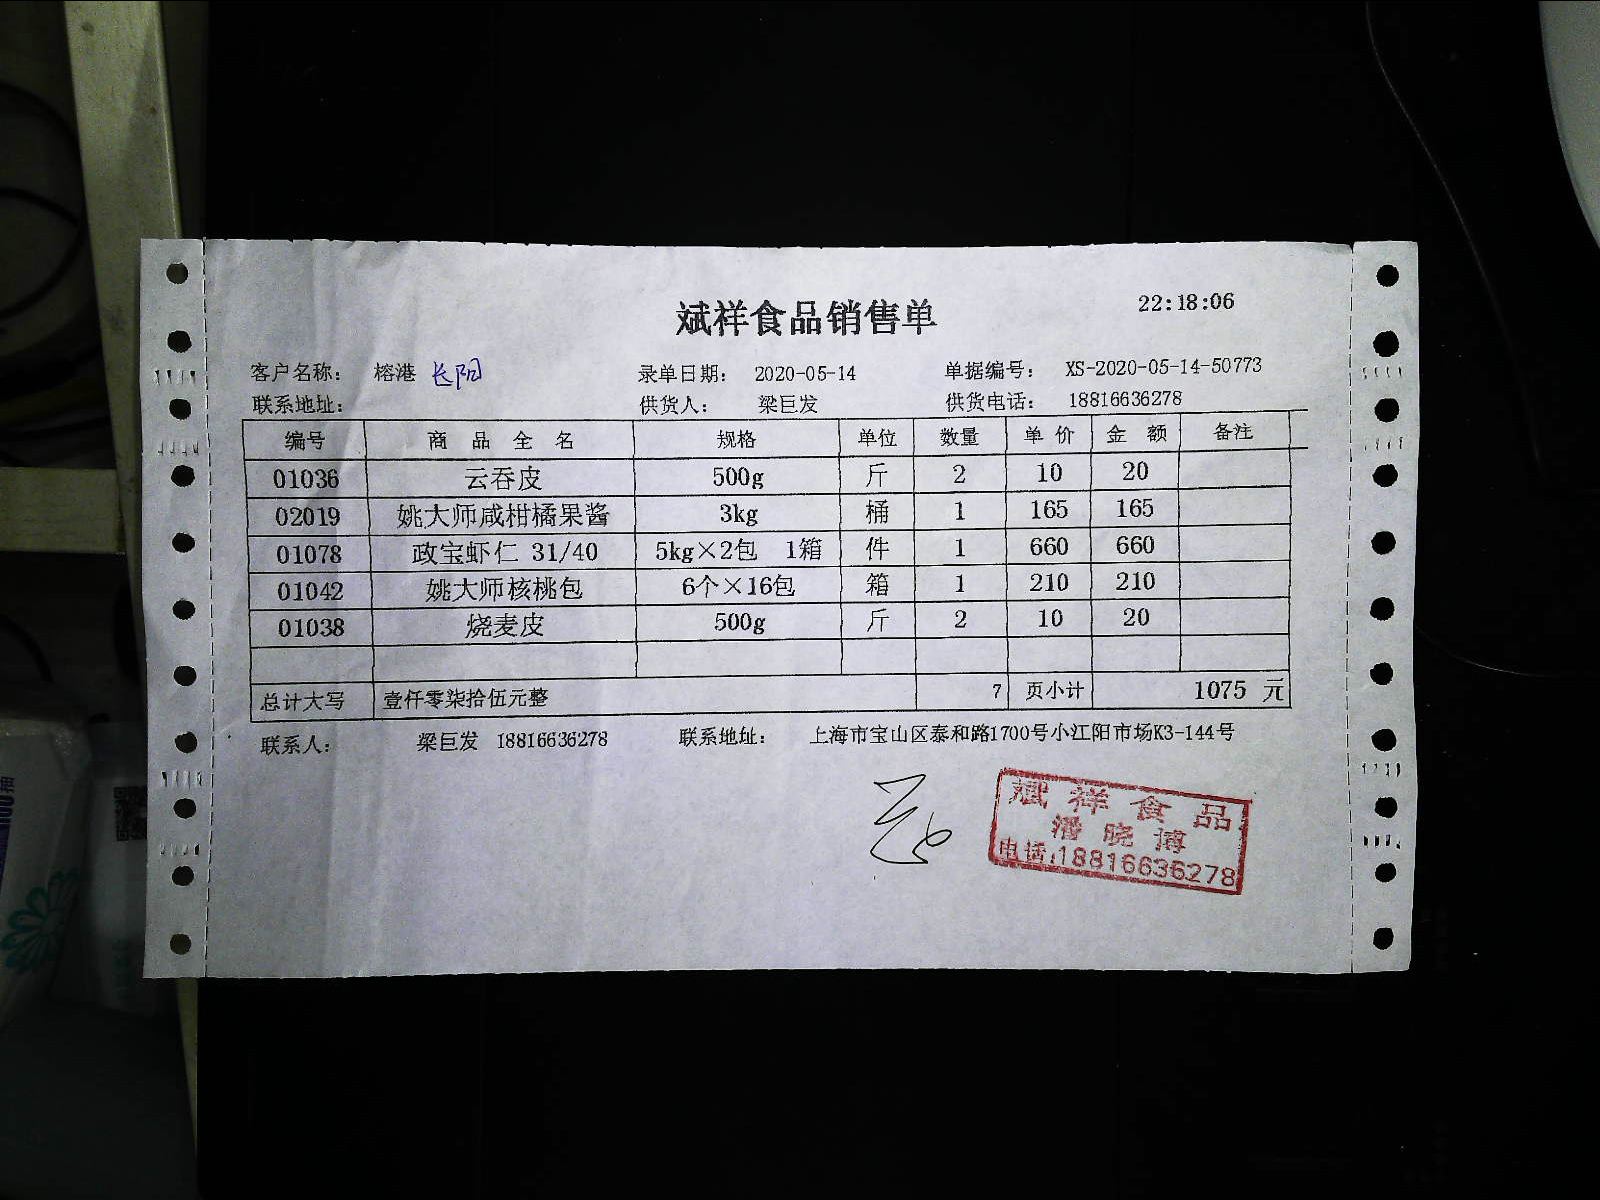 斌祥食品销售单 22:18:06
客户名称： 榕港 长阳 录单日期： 2020-05-14 单据编号： XS-2020-05-14-50773
联系地址： 供货人： 梁巨发 供货电话： 18816636278
编号 商 品 全 名 规格 单位 数量 单 价 金 额 备注
01036 云吞皮 500g 斤 2 10 20
02019 姚大师咸柑橘果酱 3kg 桶 1 165 165
01078 政宝虾仁 31/40 5kg×2包 1箱 件 1 660 660
01042 姚大师核桃包 6个×16包 箱 1 210 210
01038 烧麦皮 500g 斤 2 10 20
总计大写 壹仟零柒拾伍元整 7 页小计 1075 元
联系人： 梁巨发 18816636278 联系地址： 上海市宝山区泰和路1700号小江阳市场K3-144号
斌祥食品
潘晓博
电话:18816636278